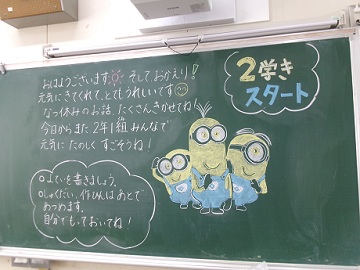 おはようございます。そして、おかえり！
元気にきてくれて、とてもうれしいです
なつ休みのお話、たくさんきかせてね！
今日からまた2年1組みんなで
元気に たのしく すごそうね！
2学き
スタート
○よていを書きましょう。
○しゅくだい、作ひんは あとで
あつめます。
自分でもっておいてね！